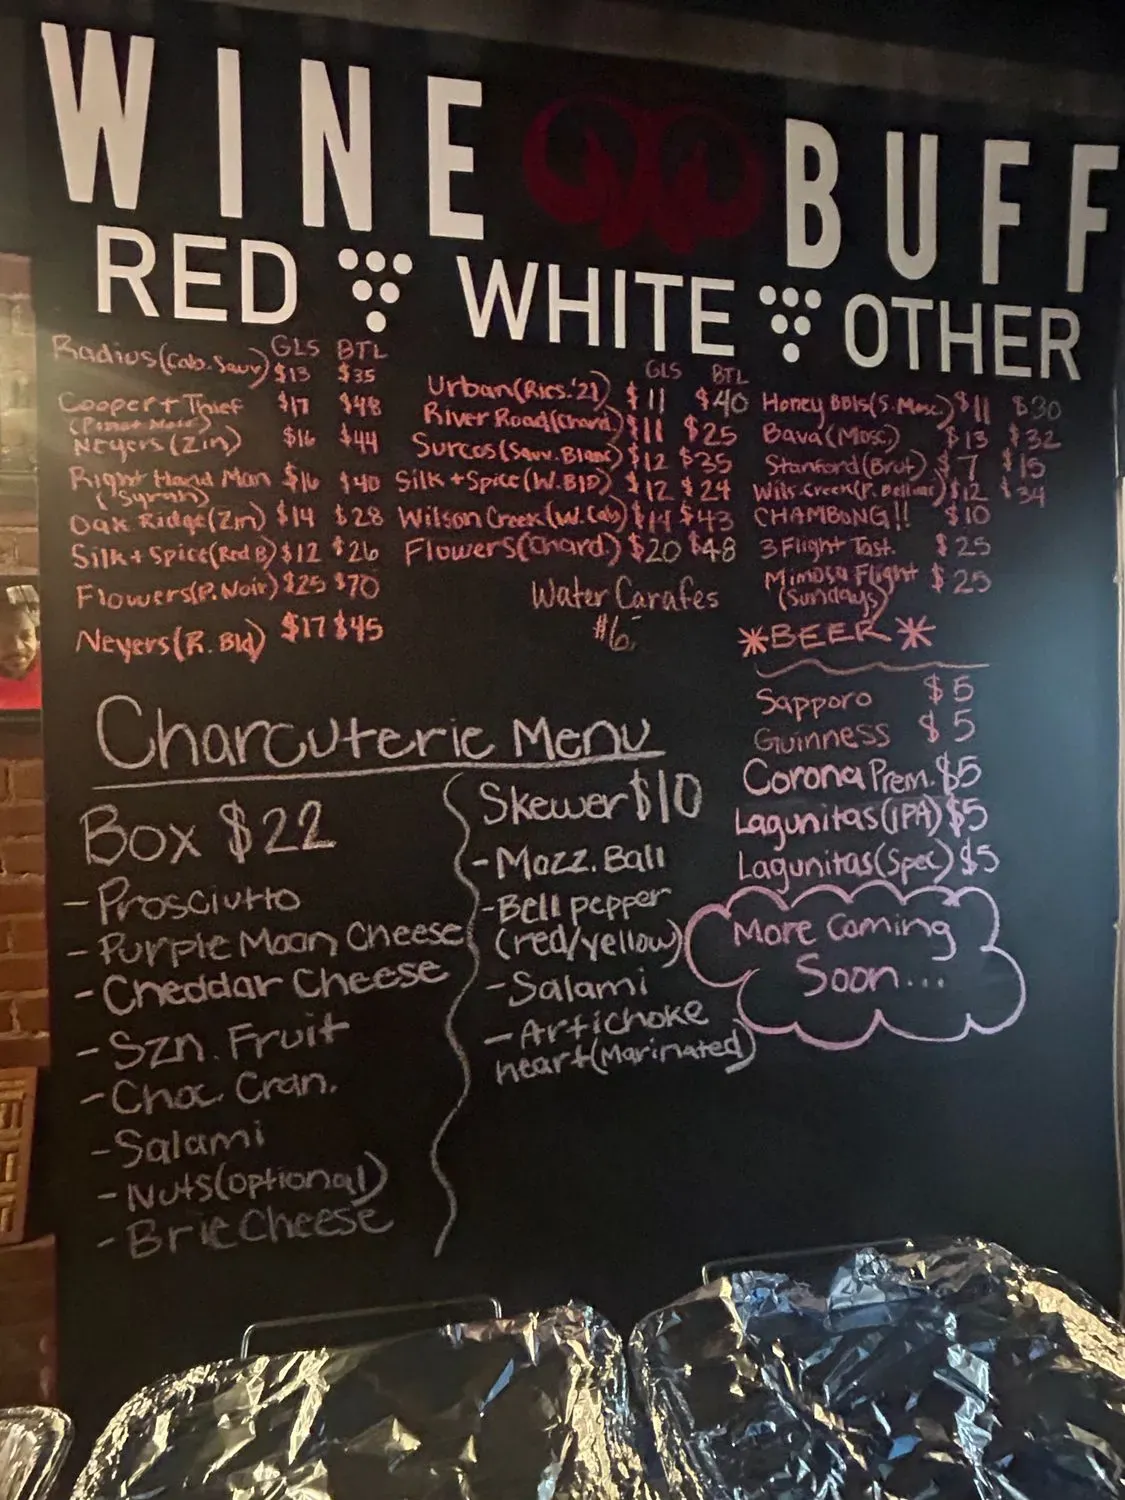 WINE BUFF
RED WHITE OTHER
GLS BTL
Radius (Cab. Sauv) $13 $35
Cooper + Thief $17 $48
Neyers (Zin) $16 $44
Right Hand Man $16 $40
(Syrah)
Oak Ridge (Zin) $14 $28
Silk + Spice (Red B) $12 $26
Flowers (P. Noir) $25 $70
Neyers (R. Bld) $17 $45
GLS BTL
Urban (Ries. '21) $11 $40
River Road (Chard) $11 $25
Surcos (Sauv. Blanc) $12 $35
Silk + Spice (W. BlD) $12 $24
Wilson Creek (W. Cab) $14 $43
Flowers (Chard.) $20 $48
Water Carafes
$6
Honey BBls (S. Mosc) $11 $30
Bava (Mosc) $13 $32
Stanford (Brut) $7 $15
Wils. Creek (P. Bellini) $12 $34
CHAMBONG!! $10
3 Flight Tast. $25
Mimosa Flight $25
(Sundays)
*BEER*
Sapporo $5
Guinness $5
Corona Prem. $5
Lagunitas (IPA) $5
Lagunitas (Spec) $5
More Coming
Soon...
Charcuterie Menu
Box $22
- Prosciutto
- Purple Moon Cheese
- Cheddar Cheese
- Szn. Fruit
- Choc. Cran.
- Salami
- Nuts (optional)
- Brie Cheese
Skewer $10
- Mozz. Ball
- Bell pepper
(red/yellow)
- Salami
- Artichoke
heart (Marinated)